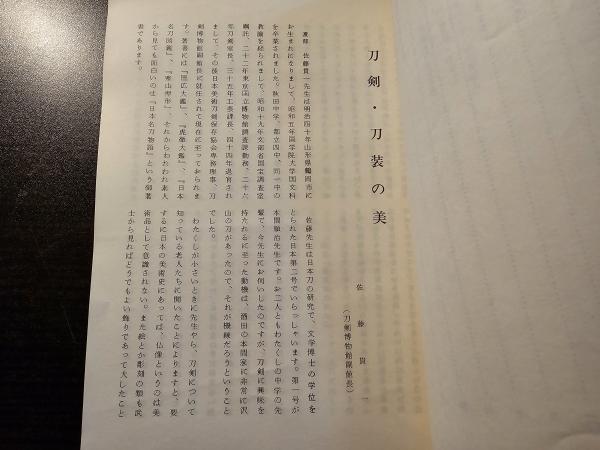 刀剣・刀装の美
佐藤貫一
(刀剣博物館副館長)
渡部 佐藤貫一先生は明治四十年山形県鶴岡市に
お生まれになりまして、昭和五年国学院大学国文科
を卒業されました。秋田中学、都立四中、同一中の
教諭を経られまして、昭和十九年文部省国宝調査室
嘱託、二十二年東京国立博物館調査課勤務、二十六
年刀剣室長、三十五年工芸課長、四十四年退官され
まして、その後日本美術刀剣保存協会専務理事、刀
剣博物館副館長に就任されて現在に至っておられま
す。著書には『国広大鑑』、『虎徹大鑑』、『日本
名刀図鑑』、『寒山押形』、それからわれわれ素人
から見ても面白いのは『日本名刀物語』という御著
書であります。
佐藤先生は日本刀の研究で、文学博士の学位を
とられた日本第二号でいらっしゃいます。第一号が
本間順治先生です。お二人ともわたくしの中学の先
輩で、今先生にお伺いしたのですが、刀剣に興味を
持たれるに至った動機は、酒田の本間家に非常に沢
山の刀があったので、それが機縁だろうということ
でした。
わたくしが小さいときに先生やら、刀剣について
知っている老人たちに聞いたことによりますと、要
するに日本の美術史にあっては、仏像というのは美
術品として意識されない。また絵とか彫刻の類も武
士から見ればどうでもよい飾りであって大したこと